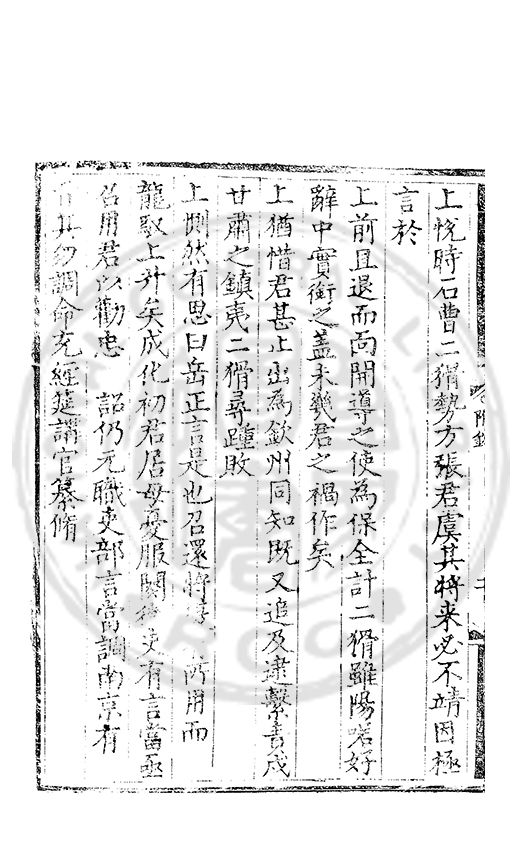 上悅時石曹二猾勢方張君虞其將来必不靖因極
言於
上前且退而面開導之使為保全計二猾雖陽喏好
辭中實銜之盖未幾君之禍作矣
上猶惜君甚止出為欽州同知既又追及逮繫責戍
甘肅之鎮夷二猾尋踵敗
上惻然有思曰岳正言是也召還將 所用而
龍馭上升矣成化初君居母憂服闋 有言當亟
召用君以勸忠 詔仍元職吏部言當調南京有
旨其勿調命充經筵講官纂脩
附錄